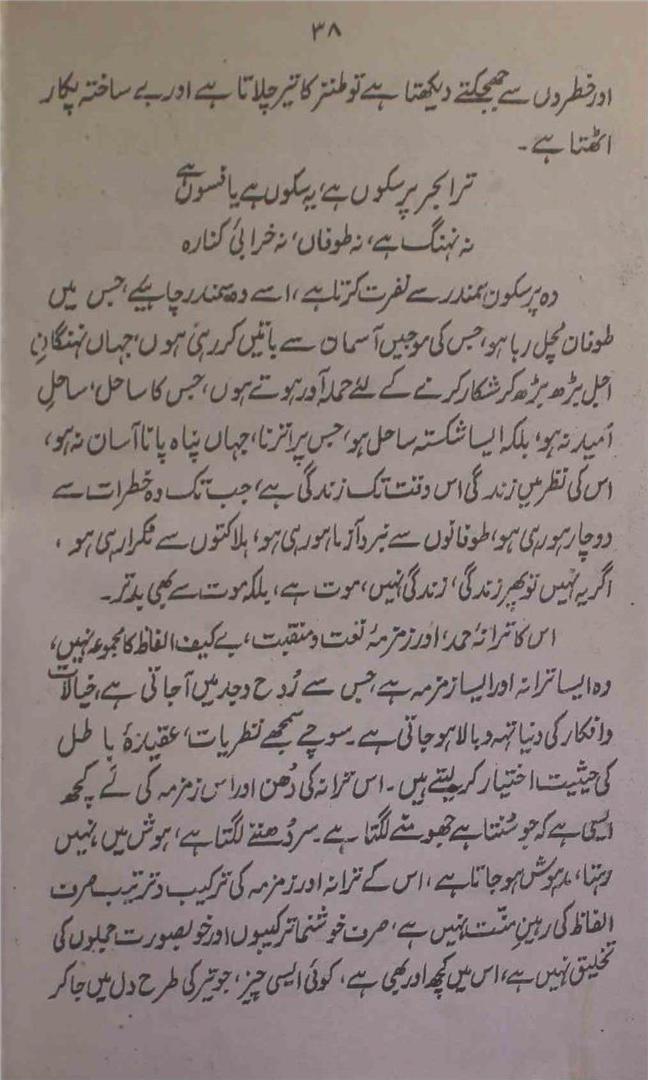 ۳۸
اور خطروں سے جھجکتے دیکھتا ہے تو طنز کا تیر چلاتا ہے اور بے ساختہ پکار
اٹھتا ہے۔
ترا بحر پرسکوں ہے، یہ سکوں ہے یا فسوں ہے
نہ نہنگ ہے، نہ طوفاں، نہ خرابئ کنارہ
وہ پرسکون سمندر سے نفرت کرتا ہے، اسے وہ سمندر چاہیے، جس میں
طوفان مچل رہا ہو، جس کی موجیں آسمان سے باتیں کر رہی ہوں، جہاں نہنگانِ
اجل بڑھ بڑھ کر شکار کرنے کے لئے حملہ آور ہوتے ہوں، جس کا ساحل، ساحلِ
امید نہ ہو، بلکہ ایسا شکستہ ساحل ہو، جس پر اترنا، جہاں پناہ پانا آسان نہ ہو،
اس کی نظر میں زندگی اس وقت تک زندگی ہے، جب تک وہ خطرات سے
دوچار ہو رہی ہو، طوفانوں سے نبرد آزما ہو رہی ہو، ہلاکتوں سے ٹکرا رہی ہو،
اگر یہ نہیں تو پھر زندگی، زندگی نہیں، موت ہے، بلکہ موت سے بھی بدتر۔
اس کا ترانۂ حمد، اور زمزمۂ نعت و منقبت، بے کیف الفاظ کا مجموعہ نہیں،
وہ ایسا ترانہ اور ایسا زمزمہ ہے جس سے رُوح وجد میں آجاتی ہے، خیالات
و افکار کی دنیا تہہ و بالا ہو جاتی ہے۔ سوچے سمجھے نظریات، عقیدۂ باطل
کی حیثیت اختیار کر لیتے ہیں۔ اس ترانہ کی دُھن اور اس زمزمہ کی لَے کچھ
ایسی ہے کہ جو سُنتا ہے جھومنے لگتا ہے۔ سر دُھننے لگتا ہے، ہوش میں نہیں
رہتا، مدہوش ہو جاتا ہے، اس کے ترانہ اور زمزمہ کی ترکیب و ترتیب صرف
الفاظ کی رہینِ منّت نہیں ہے، صرف خوشنما ترکیبوں اور خوبصورت جملوں کی
تخلیق نہیں ہے، اس میں کچھ اور بھی ہے، کوئی ایسی چیز، جو تیر کی طرح دل میں جا کر